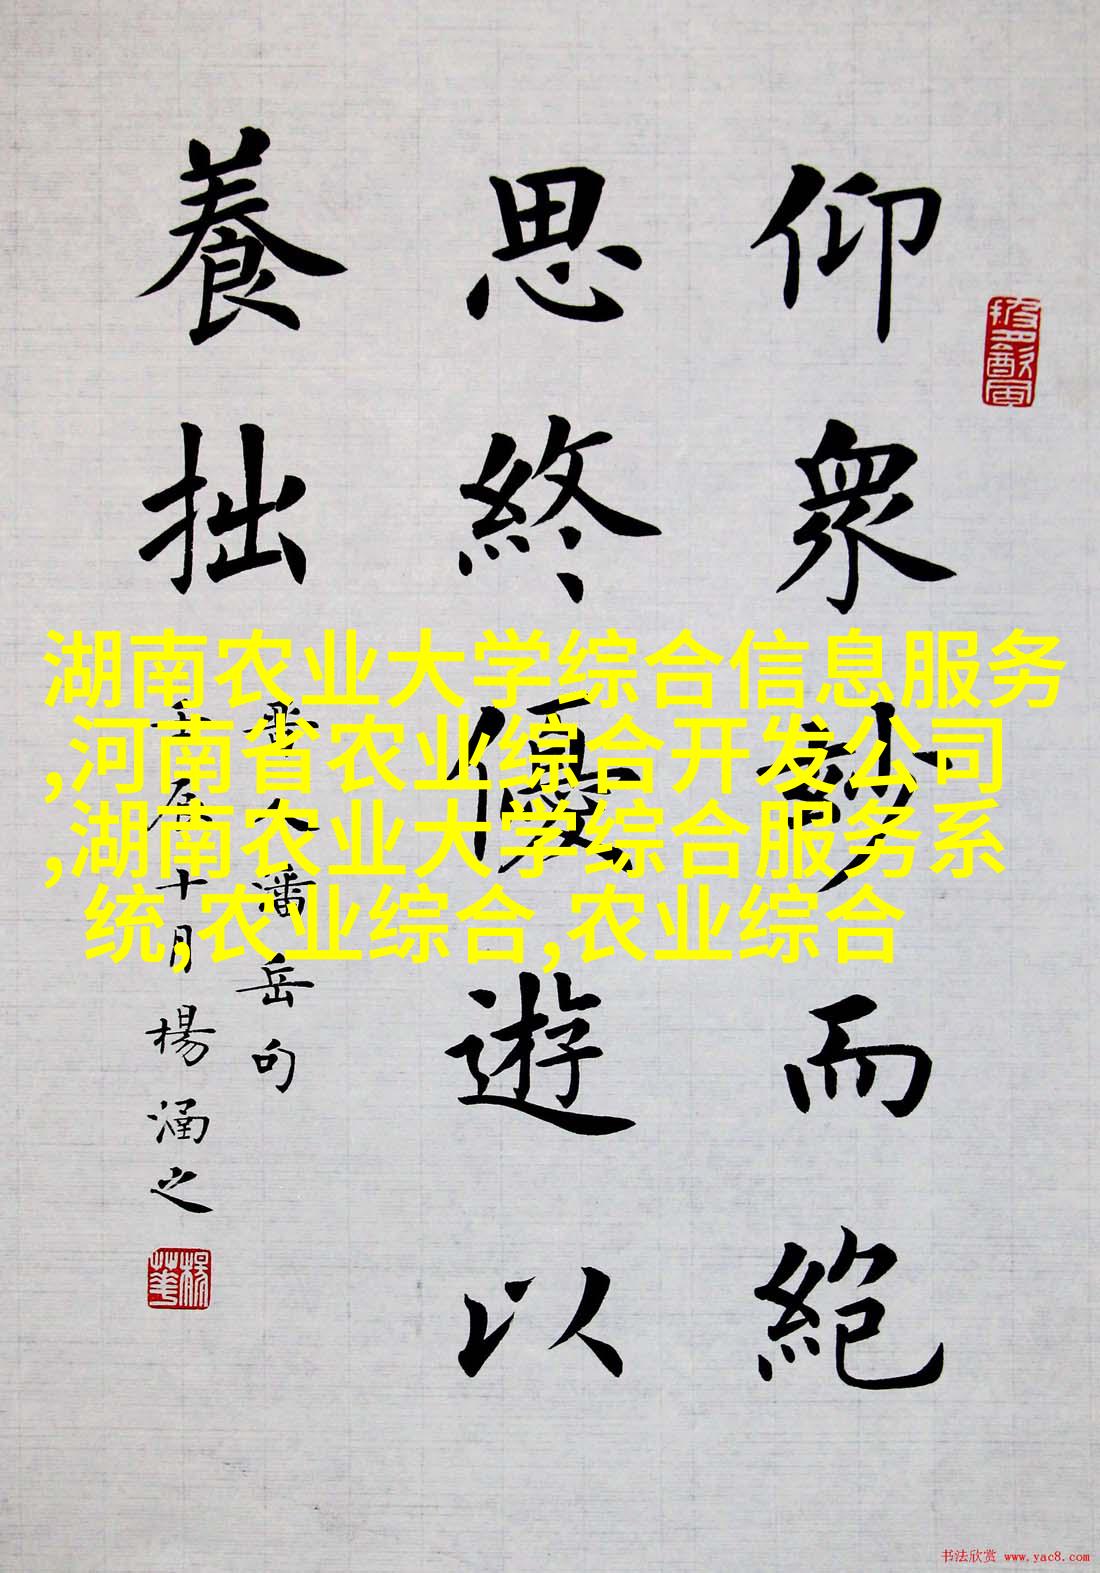 仰眾玅而絕
思終優遊以
養拙
晉人潘岳句
壬辰十月楊涵之
湖南农业大学综合信息服务
,河南省农业综合开发公司
,湖南农业大学综合服务系
统,农业综合,农业综合
书法欣赏 www.yac8.com